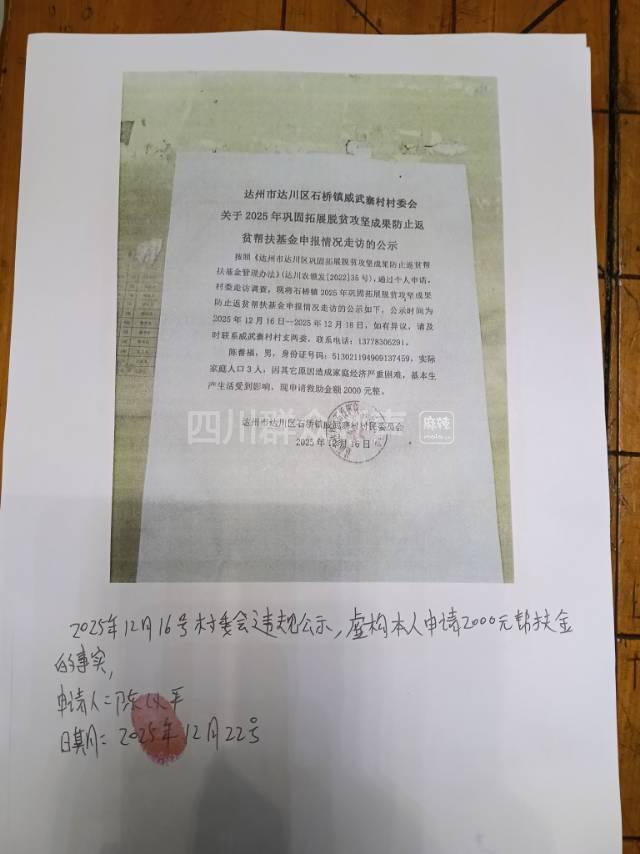 达州市达川区石桥镇威武寨村村委会
关于2025年巩固拓展脱贫攻坚成果防止返
贫帮扶基金申报情况走访的公示
按照《达州市达川区巩固拓展脱贫攻坚成果防止返贫帮
扶基金管理办法》(达川农领发[2022]35号),通过个人申请,
村委走访调查,现将石桥镇2025年巩固拓展脱贫攻坚成果
防止返贫帮扶基金申报情况的公示如下,公示时间为
2025年12月16日—2025年12月18日,如有异议,请及
时联系威武寨村村支两委,联系电话:13778306291。
陈善福,男,身份证号码:513021194909137459,实际
家庭人口3人,因其它原因造成家庭经济严重困难,基本生
产生活受到影响,现申请救助金额2000元整。
四川群众呼声
麻辣
mala.cn
达州市达川区石桥镇威武寨村村民委员会
2025年12月16日
2025年12月16号村委会违规公示,虚构本人申请2000元帮扶金
的事实,
申请人:陈 平
日期:2025年12月22号